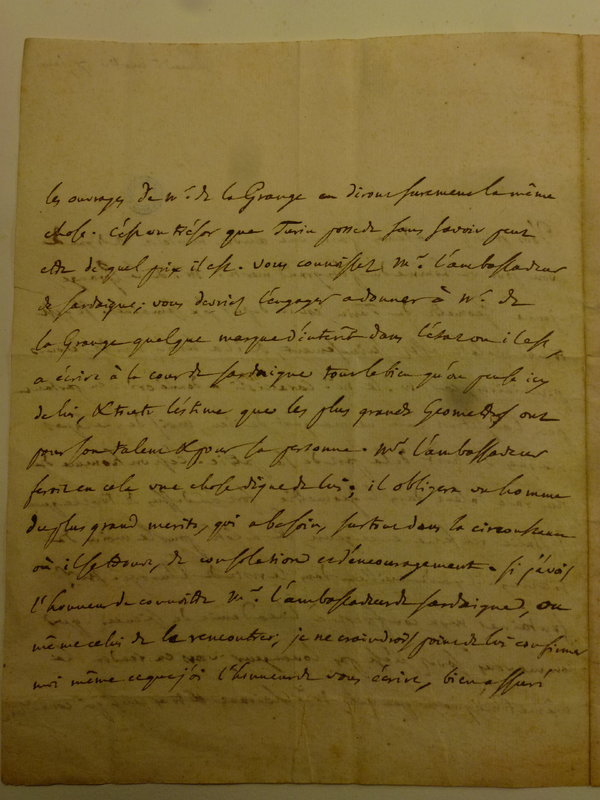 les ouvrages de Mr. de la Grange en diront surement la même
chose. C'est un trésor que Turin possede sans savoir peut
etre de quel prix il est. vous connoissez Mr. l'ambassadeur
de Sardaigne; vous devriez l'engager a donner à Mr. de
la Grange quelque marque d'interêt dans l'état ou il est,
a écrire à la cour de Sardaigne tout le bien qu'on pense icy
de lui, & toute l'estime que les plus grands Geometres ont
pour son talent & pour sa personne. Mr. l'ambassadeur
feroit en cela une chose digne de lui; il obligera un homme
du plus grand merite, qui a besoin, surtout dans la circonstance
où il se trouve, de consolation et d'encouragement. Si j'avois
l'honneur de connoitre Mr. l'ambassadeur de Sardaigne, ou
même celui de le rencontrer, je ne craindrois point de lui confirmer
moi même ce que j'ai l'honneur de vous écrire, bien assuré